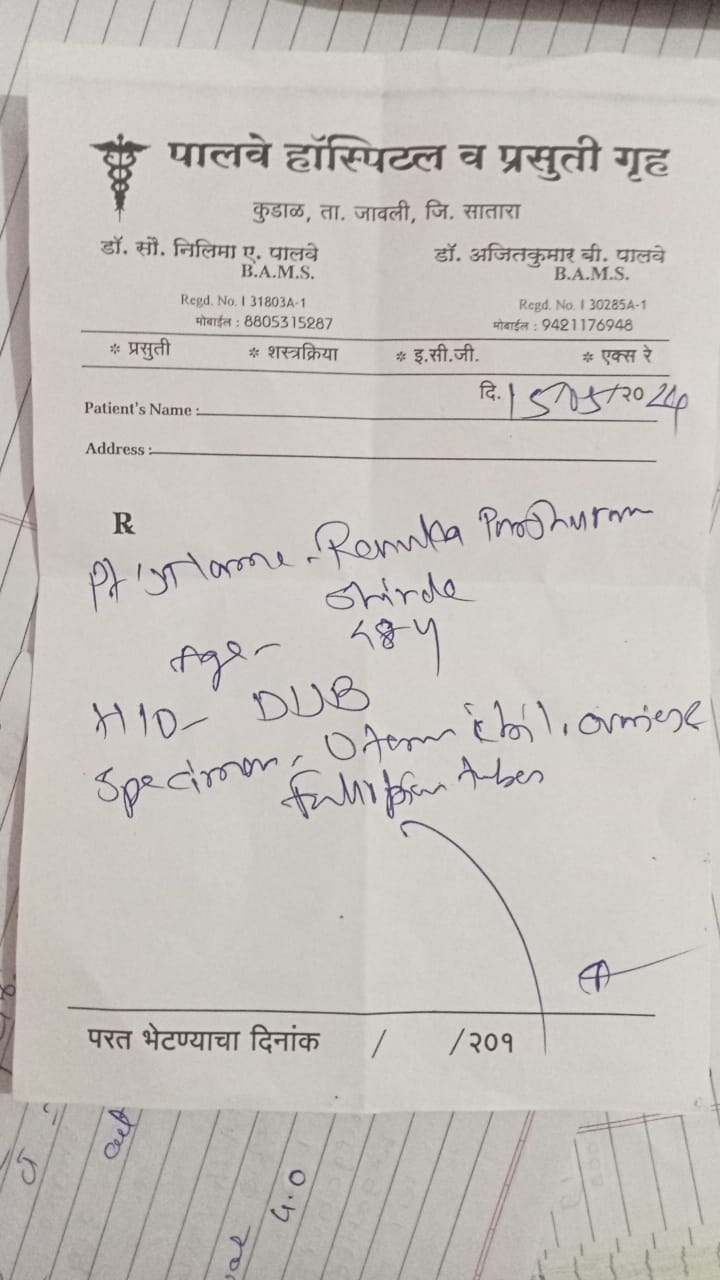 पालवे हॉस्पिटल व प्रसुती गृह
कुडाळ, ता. जावली, जि. सातारा
डॉ. सौ. निलिमा ए. पालवे
B.A.M.S.
Regd. No. I 31803A-1
मोबाईल : 8805315287
डॉ. अजितकुमार बी. पालवे
B.A.M.S.
Regd. No. I 30285A-1
मोबाईल : 9421176948
* प्रसुती * शस्त्रक्रिया * इ.सी.जी. * एक्स रे
दि. 15/05/२०24
Patient's Name :
Address :
℞
Pt's Name - Renuka
Shinde
Age -
H/O - DUB
Specimen -
fallopian tubes
परत भेटण्याचा दिनांक / /२०१
4.0